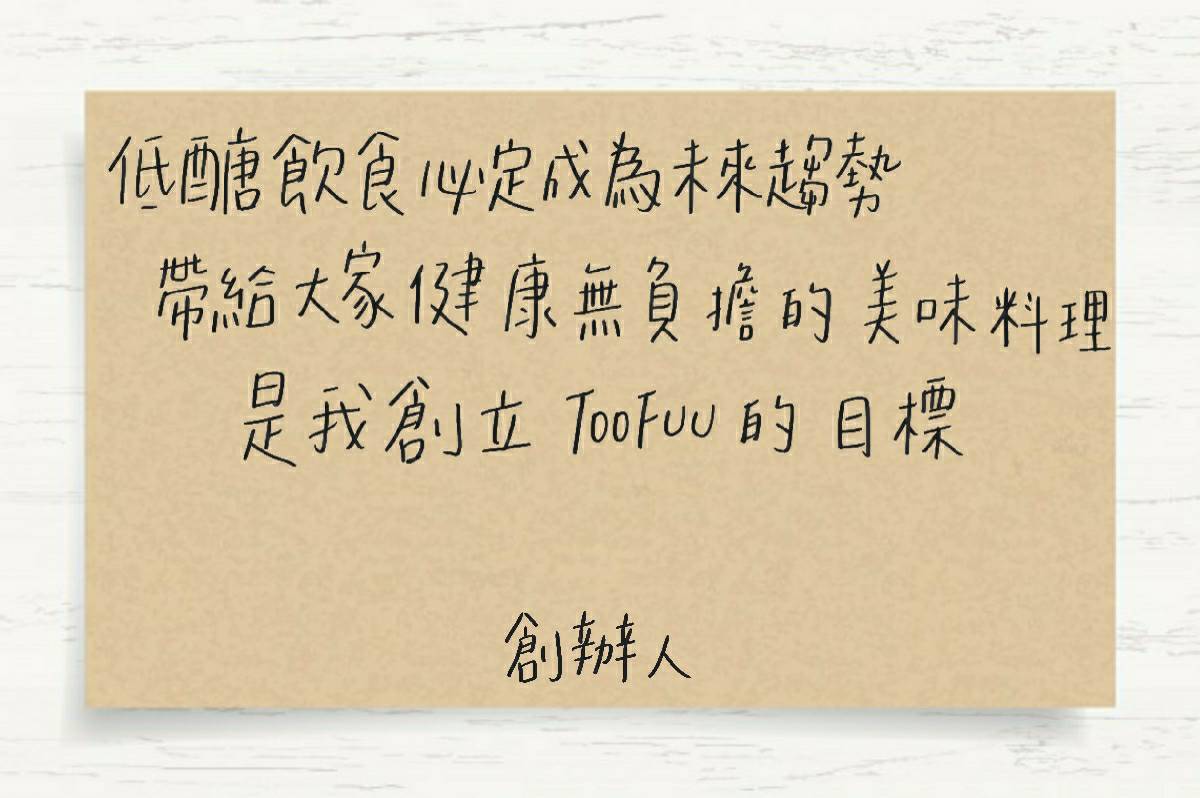 低醣飲食必定成為未來趨勢
帶給大家健康無負擔的美味料理
是我創立 TOOFUU 的目標
創辦人